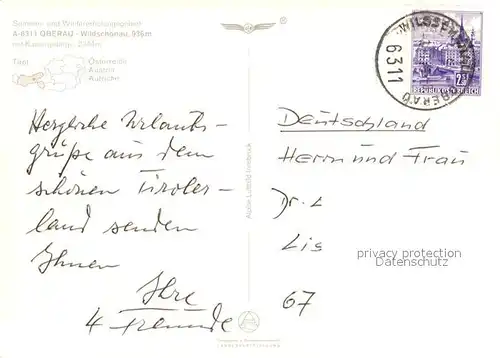 Sommer- und Wintererholungsgebiet
A-6311 OBERAU - Wildschönau, 936m
Tirol
Österreich
Austria
Autriche
6311
OBERAU
2 S
REPUBLIK ÖSTERREICH
Herzliche Urlaubs-
grüße aus dem
schönen Tiroler-
land senden
Ihnen
Ihre
4 Freunde
Deutschland
Herrn und Frau
Dr. L
Lis
67
privacy protection
Datenschutz